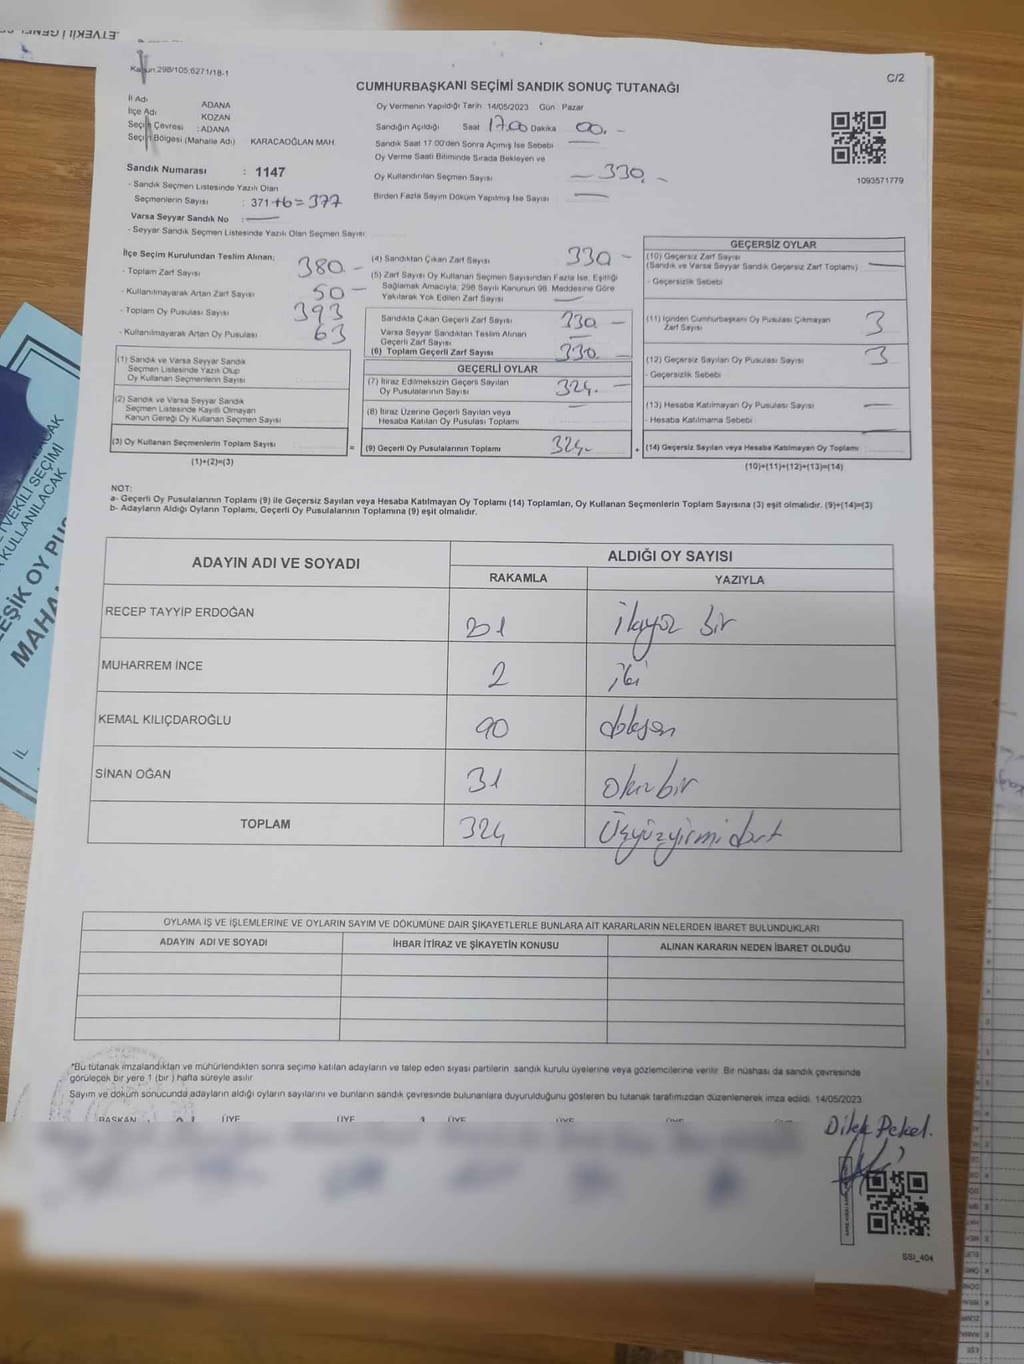 C/2
Kanun:298/105;6271/18-1
CUMHURBAŞKANI SEÇİMİ SANDIK SONUÇ TUTANAĞI
İl Adı : ADANA
İlçe Adı : KOZAN
Seçim Çevresi : ADANA
Seçim Bölgesi (Mahalle Adı) KARACAOĞLAN MAH.
Sandık Numarası : 1147
- Sandık Seçmen Listesinde Yazılı Olan
Seçmenlerin Sayısı : 371+6=377
Varsa Seyyar Sandık No :
- Seyyar Sandık Seçmen Listesinde Yazılı Olan Seçmen Sayısı
Oy Vermenin Yapıldığı Tarih :14/05/2023 Gün : Pazar
Sandığın Açıldığı Saat 17.00 Dakika 00.-
Sandık Saat 17:00'den Sonra Açılmış İse Sebebi
Oy Verme Saati Bitiminde Sırada Bekleyen ve
Oy Kullandırılan Seçmen Sayısı - 330.-
Birden Fazla Sayım Döküm Yapılmış İse Sayısı
1093571779
İlçe Seçim Kurulundan Teslim Alınan;
- Toplam Zarf Sayısı 380-
- Kullanılmayarak Artan Zarf Sayısı 50-
- Toplam Oy Pusulası Sayısı 393
- Kullanılmayarak Artan Oy Pusulası 63
(1) Sandık ve Varsa Seyyar Sandık
Seçmen Listesinde Yazılı Olup
Oy Kullanan Seçmenlerin Sayısı
(2) Sandık ve Varsa Seyyar Sandık
Seçmen Listesinde Kayıtlı Olmayan
Kanun Gereği Oy Kullanan Seçmen Sayısı
(3) Oy Kullanan Seçmenlerin Toplam Sayısı
(1)+(2)=(3)
(4) Sandıktan Çıkan Zarf Sayısı 330-
(5) Zarf Sayısı Oy Kullanan Seçmen Sayısından Fazla İse, Eşitliği
Sağlamak Amacıyla, 298 Sayılı Kanunun 98. Maddesine Göre
Yakılarak Yok Edilen Zarf Sayısı
Sandıkta Çıkan Geçerli Zarf Sayısı 330 -
Varsa Seyyar Sandıktan Teslim Alınan
Geçerli Zarf Sayısı
(6) Toplam Geçerli Zarf Sayısı 330.
GEÇERLİ OYLAR
(7) İtiraz Edilmeksizin Geçerli Sayılan
Oy Pusulalarının Sayısı 324. -
(8) İtiraz Üzerine Geçerli Sayılan veya
Hesaba Katılan Oy Pusulası Toplamı
= (9) Geçerli Oy Pusulalarının Toplamı 324-
GEÇERSİZ OYLAR
(10) Geçersiz Zarf Sayısı
(Sandık ve Varsa Seyyar Sandık Geçersiz Zarf Toplamı)
- Geçersizlik Sebebi
(11) İçinden Cumhurbaşkanı Oy Pusulası Çıkmayan
Zarf Sayısı 3
(12) Geçersiz Sayılan Oy Pusulası Sayısı 3
- Geçersizlik Sebebi
(13) Hesaba Katılmayan Oy Pusulası Sayısı
- Hesaba Katılmama Sebebi
+ (14) Geçersiz Sayılan veya Hesaba Katılmayan Oy Toplamı
(10)+(11)+(12)+(13)=(14)
NOT:
a- Geçerli Oy Pusulalarının Toplamı (9) ile Geçersiz Sayılan veya Hesaba Katılmayan Oy Toplamı (14) Toplamları, Oy Kullanan Seçmenlerin Toplam Sayısına (3) eşit olmalıdır. (9)+(14)=(3)
b- Adayların Aldığı Oyların Toplamı, Geçerli Oy Pusulalarının Toplamına (9) eşit olmalıdır.
ADAYIN ADI VE SOYADI
ALDIĞI OY SAYISI
RAKAMLA YAZIYLA
RECEP TAYYİP ERDOĞAN 201 ikiyüz bir
MUHARREM İNCE 2 iki
KEMAL KILIÇDAROĞLU 90 doksan
SİNAN OĞAN 31 otuzbir
TOPLAM 324 Üçyüzyirmidört
OYLAMA İŞ VE İŞLEMLERİNE VE OYLARIN SAYIM VE DÖKÜMÜNE DAİR ŞİKAYETLERLE BUNLARA AİT KARARLARIN NELERDEN İBARET BULUNDUKLARI
ADAYIN ADI VE SOYADI İHBAR İTİRAZ VE ŞİKAYETİN KONUSU ALINAN KARARIN NEDEN İBARET OLDUĞU
*Bu tutanak imzalandıktan ve mühürlendikten sonra seçime katılan adayların ve talep eden siyasi partilerin sandık kurulu üyelerine veya gözlemcilerine verilir. Bir nüshası da sandık çevresinde
görülecek bir yere 1 (bir) hafta süreyle asılır.
Sayım ve döküm sonucunda adayların aldığı oyların sayılarını ve bunların sandık çevresinde bulunanlara duyurulduğunu gösteren bu tutanak tarafımızdan düzenlenerek imza edildi. 14/05/2023
BAŞKAN ÜYE ÜYE ÜYE ÜYE ÜYE
Dilek Pekel.
SSI_404